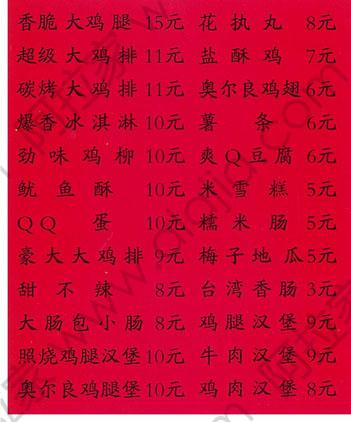 香脆大鸡腿 15元 花执丸 8元
超级大鸡排 11元 盐酥鸡 7元
碳烤大鸡排 11元 奥尔良鸡翅 6元
爆香冰淇淋 10元 薯条 6元
劲味鸡柳 10元 爽Q豆腐 6元
鱿鱼酥 10元 米雪糕 5元
QQ蛋 10元 糯米肠 5元
豪大大鸡排 9元 梅子地瓜 5元
甜不辣 8元 台湾香肠 3元
大肠包小肠 8元 鸡腿汉堡 9元
照烧鸡腿汉堡 10元 牛肉汉堡 9元
奥尔良鸡腿堡 10元 鸡肉汉堡 8元